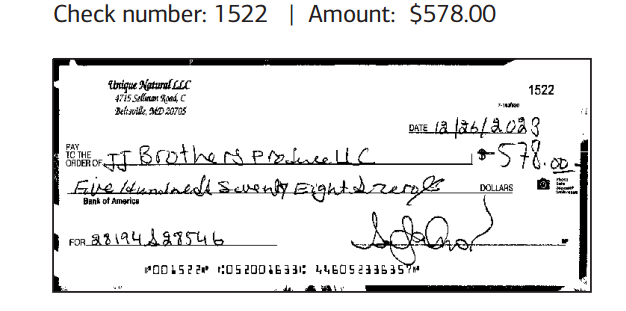 Check number: 1522 | Amount: $578.00
Unique Natural LLC
4715 Sellman Road, C
Beltsville, MD 20705
1522
DATE 12/26/2023
PAY TO THE ORDER OF JJ Brothers Produce LLC $578.00
Five Hundred Seventy Eight & zero/ DOLLARS
Bank of America
FOR 28194 & 28546
⑈001522⑈ ⑆052001633⑆ 446052336357⑈